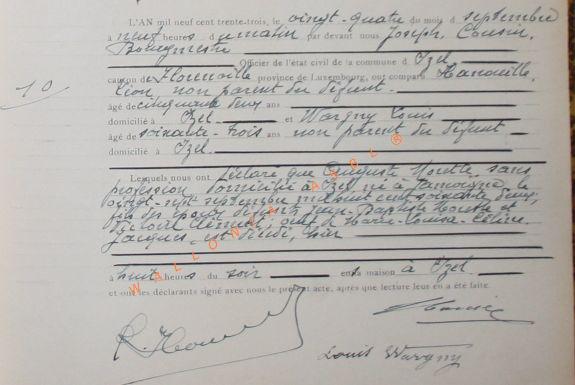 L'AN mil neuf cent trente-trois, le vingt-quatre du mois d septembre
à neuf heures d u matin d par devant nous Joseph, Cousin,
Bourgmestre
Officier de l'état civil de la commune d'Izel
canton de Florenville province de Luxembourg, ont comparu Hanouille,
Léon, non parent du défunt
âgé de cinquante deux ans
domicilié à Izel et Wargny Louis
âgé de soixante-trois ans non parent du défunt
domicilié à Izel
10
Lesquels nous ont déclaré que Auguste, sans
profession, domicilié à Izel né à Jamoigne, le
vingt-sept septembre mil huit cent soixante deux,
fils des époux défunts Jean-Baptiste et
Victoire, de Marie-Louise-Céline
Jacques, est décédé, hier
à huit heures du soir en sa maison à Izel
et ont les déclarants signé avec nous le présent acte, après que lecture leur en a été faite.
Louis Wargny
WALLONIA ASBL ®